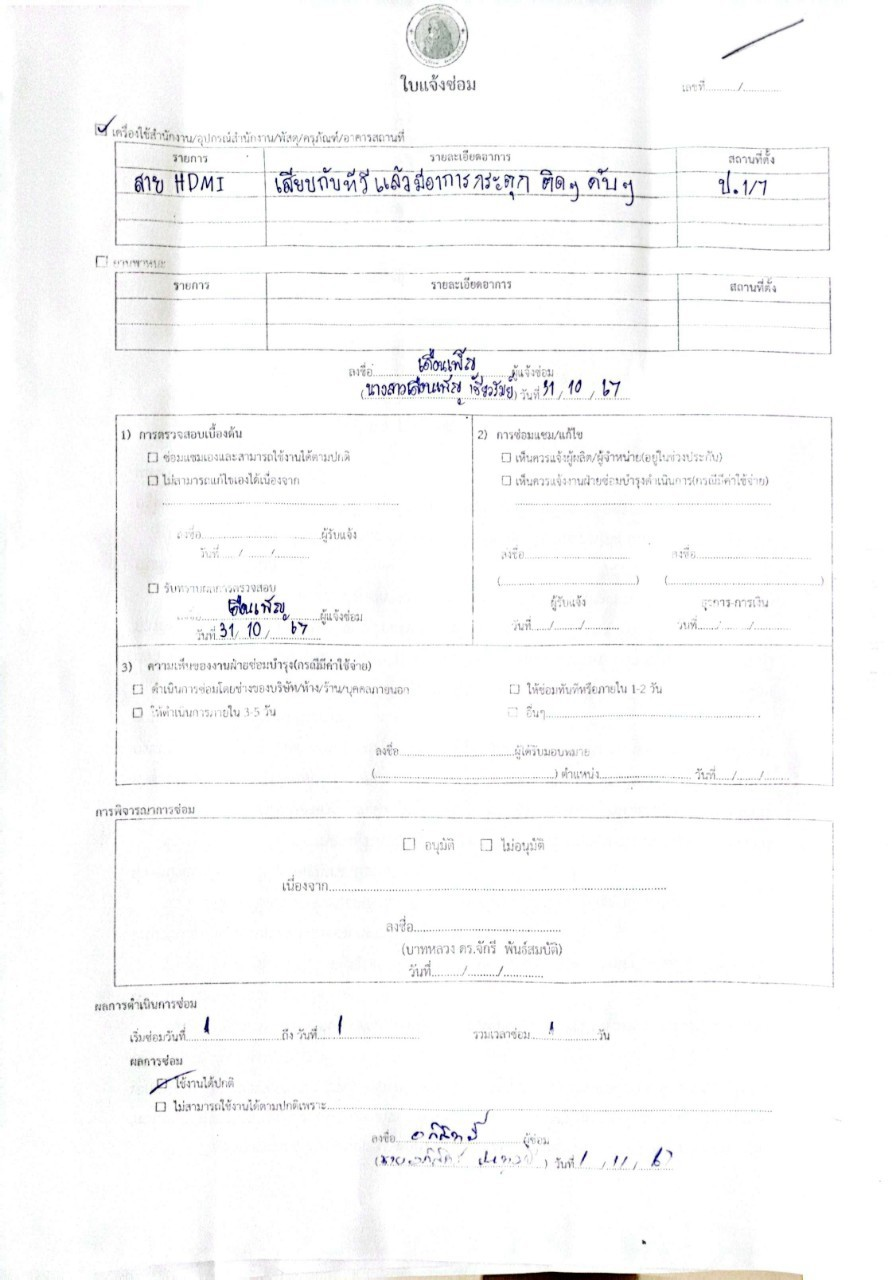 ใบแจ้งซ่อม
เลขที่........../............
เครื่องใช้สำนักงาน/อุปกรณ์สำนักงาน/พัสดุ/ครุภัณฑ์/อาคารสถานที่
รายการ รายละเอียดอาการ สถานที่ตั้ง
สาย HDMI เสียบกับทีวีแล้วมีอาการกระตุก ติดๆ ดับๆ ป.1/7
ยานพาหนะ
รายการ รายละเอียดอาการ สถานที่ตั้ง
ลงชื่อ เดือนเพ็ญ ผู้แจ้งซ่อม
(นางสาวเดือนเพ็ญ ) วันที่ 31 / 10 / 67
1) การตรวจสอบเบื้องต้น
ซ่อมแซมเองและสามารถใช้งานได้ตามปกติ
ไม่สามารถแก้ไขเองได้เนื่องจาก
ลงชื่อ..............................ผู้รับแจ้ง
วันที่...../......./..........
รับทราบผลการตรวจสอบ
ลงชื่อ เดือนเพ็ญ ผู้แจ้งซ่อม
วันที่ 31 / 10 / 67
2) การซ่อมแซม/แก้ไข
เห็นควรแจ้งผู้ผลิต/ผู้จำหน่าย(อยู่ในช่วงประกัน)
เห็นควรแจ้งงานฝ่ายซ่อมบำรุงดำเนินการ(กรณีมีค่าใช้จ่าย)
ลงชื่อ.............................. ลงชื่อ..............................
(..............................) (..............................)
ผู้รับแจ้ง ธุรการ-การเงิน
วันที่...../....../.......... วันที่...../....../..........
3) ความเห็นของงานฝ่ายซ่อมบำรุง(กรณีมีค่าใช้จ่าย)
ดำเนินการซ่อมโดยช่างของบริษัท/ห้าง/ร้าน/บุคคลภายนอก ให้ซ่อมทันทีหรือภายใน 1-2 วัน
ให้ดำเนินการภายใน 3-5 วัน อื่นๆ..............................
ลงชื่อ..............................ผู้ได้รับมอบหมาย
(..............................) ตำแหน่ง.................... วันที่...../....../.......
การพิจารณาการซ่อม
อนุมัติ ไม่อนุมัติ
เนื่องจาก..............................
ลงชื่อ..............................
(บาทหลวง ดร.จักรี พันธ์สมบัติ)
วันที่......../......../..........
ผลการดำเนินการซ่อม
เริ่มซ่อมวันที่ 1 ถึง วันที่ 1 รวมเวลาซ่อม 1 วัน
ผลการซ่อม
ใช้งานได้ปกติ
ไม่สามารถใช้งานได้ตามปกติเพราะ..............................
ลงชื่อ ผู้ซ่อม
วันที่ 1 / 11 / 67